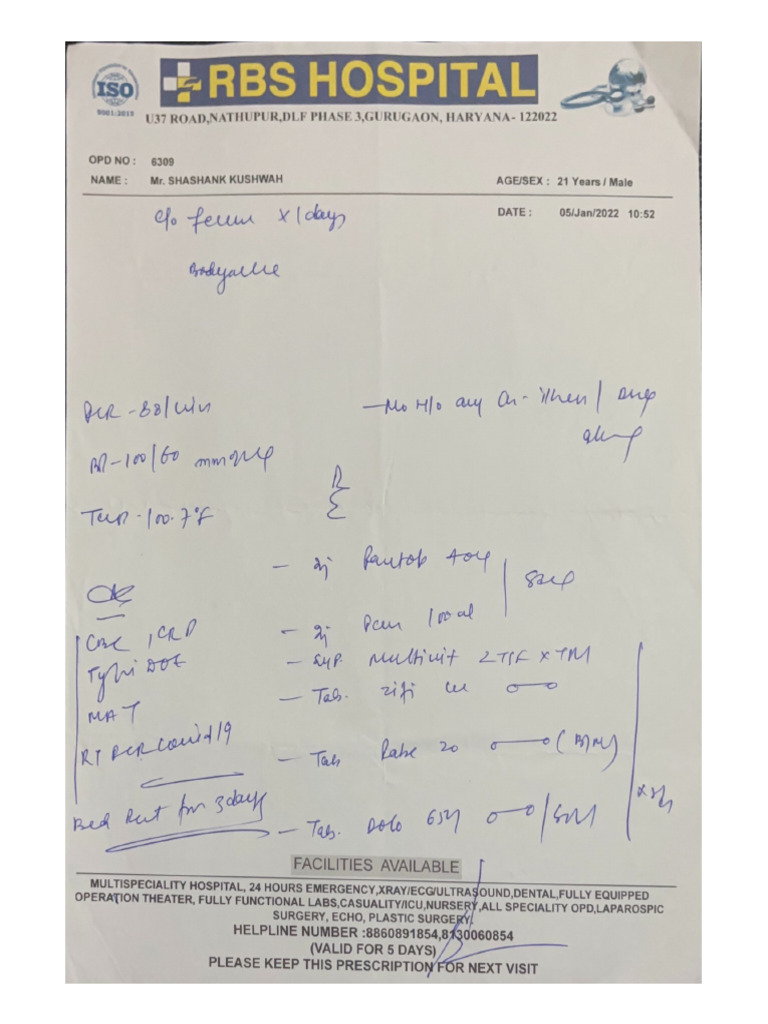 ISO
9001:2015
RBS HOSPITAL
U37 ROAD,NATHUPUR,DLF PHASE 3,GURUGAON, HARYANA- 122022
OPD NO : 6309
NAME : Mr. SHASHANK KUSHWAH
AGE/SEX : 21 Years / Male
DATE : 05/Jan/2022 10:52
c/o fever x 1 days
Bodyache
- No H/o any
BP - 100/60 mmHg
Temp - 100.7°F
- Inj Pantop 40
- Inj Pcm 100 ml
CBC, CRP
- Syp. Multivit 2 TSF x
Typhi DOT
- Tab. Zifi
MAT
RT PCR Covid 19
- Tab Rabe 20
Bed Rest for 3 days
- Tab. Dolo
FACILITIES AVAILABLE
MULTISPECIALITY HOSPITAL, 24 HOURS EMERGENCY,XRAY/ECG/ULTRASOUND,DENTAL,FULLY EQUIPPED
OPERATION THEATER, FULLY FUNCTIONAL LABS,CASUALITY/ICU,NURSERY,ALL SPECIALITY OPD,LAPAROSPIC
SURGERY, ECHO, PLASTIC SURGERY.
HELPLINE NUMBER :8860891854,8130060854
(VALID FOR 5 DAYS)
PLEASE KEEP THIS PRESCRIPTION FOR NEXT VISIT